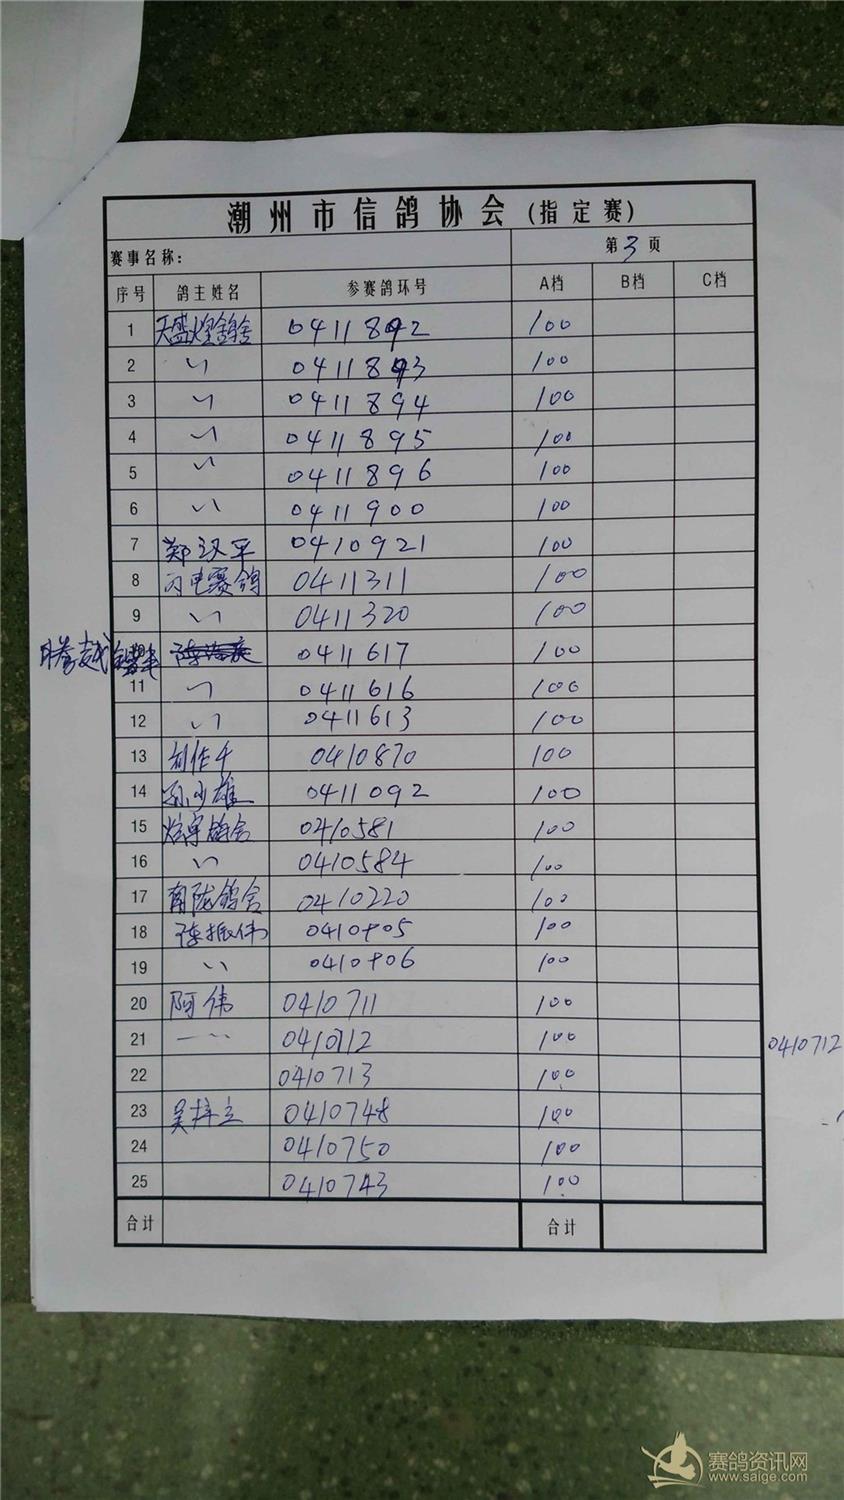 潮州市信鸽协会(指定赛)
赛事名称: 第3页
序号 鸽主姓名 参赛鸽环号 A档 B档 C档
1 天盛煌鸽舍 0411892 100
2 〃 0411893 100
3 〃 0411894 100
4 〃 0411895 100
5 〃 0411896 100
6 〃 0411900 100
7 郑汉平 0410921 100
8 闪电赛鸽 0411311 100
9 〃 0411320 100
腾越 0411617 100
11 〃 0411616 100
12 〃 0411613 100
13 刘作千 0410870 100
14 孙少雄 0411092 100
15 炫宇鸽舍 0410581 100
16 〃 0410584 100
17 南陇鸽舍 0410220 100
18 陈振伟 0410805 100
19 〃 0410806 100
20 阿伟 0410711 100
21 〃 0410712 100 0410712
22 0410713 100
23 吴梓立 0410748 100
24 0410750 100
25 0410743 100
合计 合计
赛鸽资讯网
www.saige.com